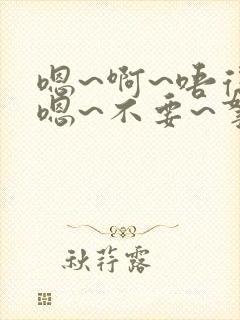 嗯~啊~唔
嗯~不要~
秋荇露